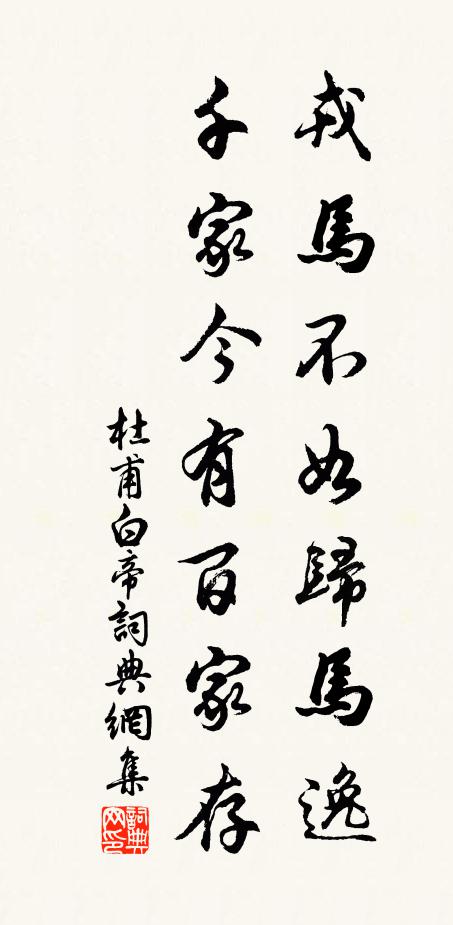 戎馬不如歸馬逸
千家今有百家存
杜甫白帝詞典網集
詞典
网印